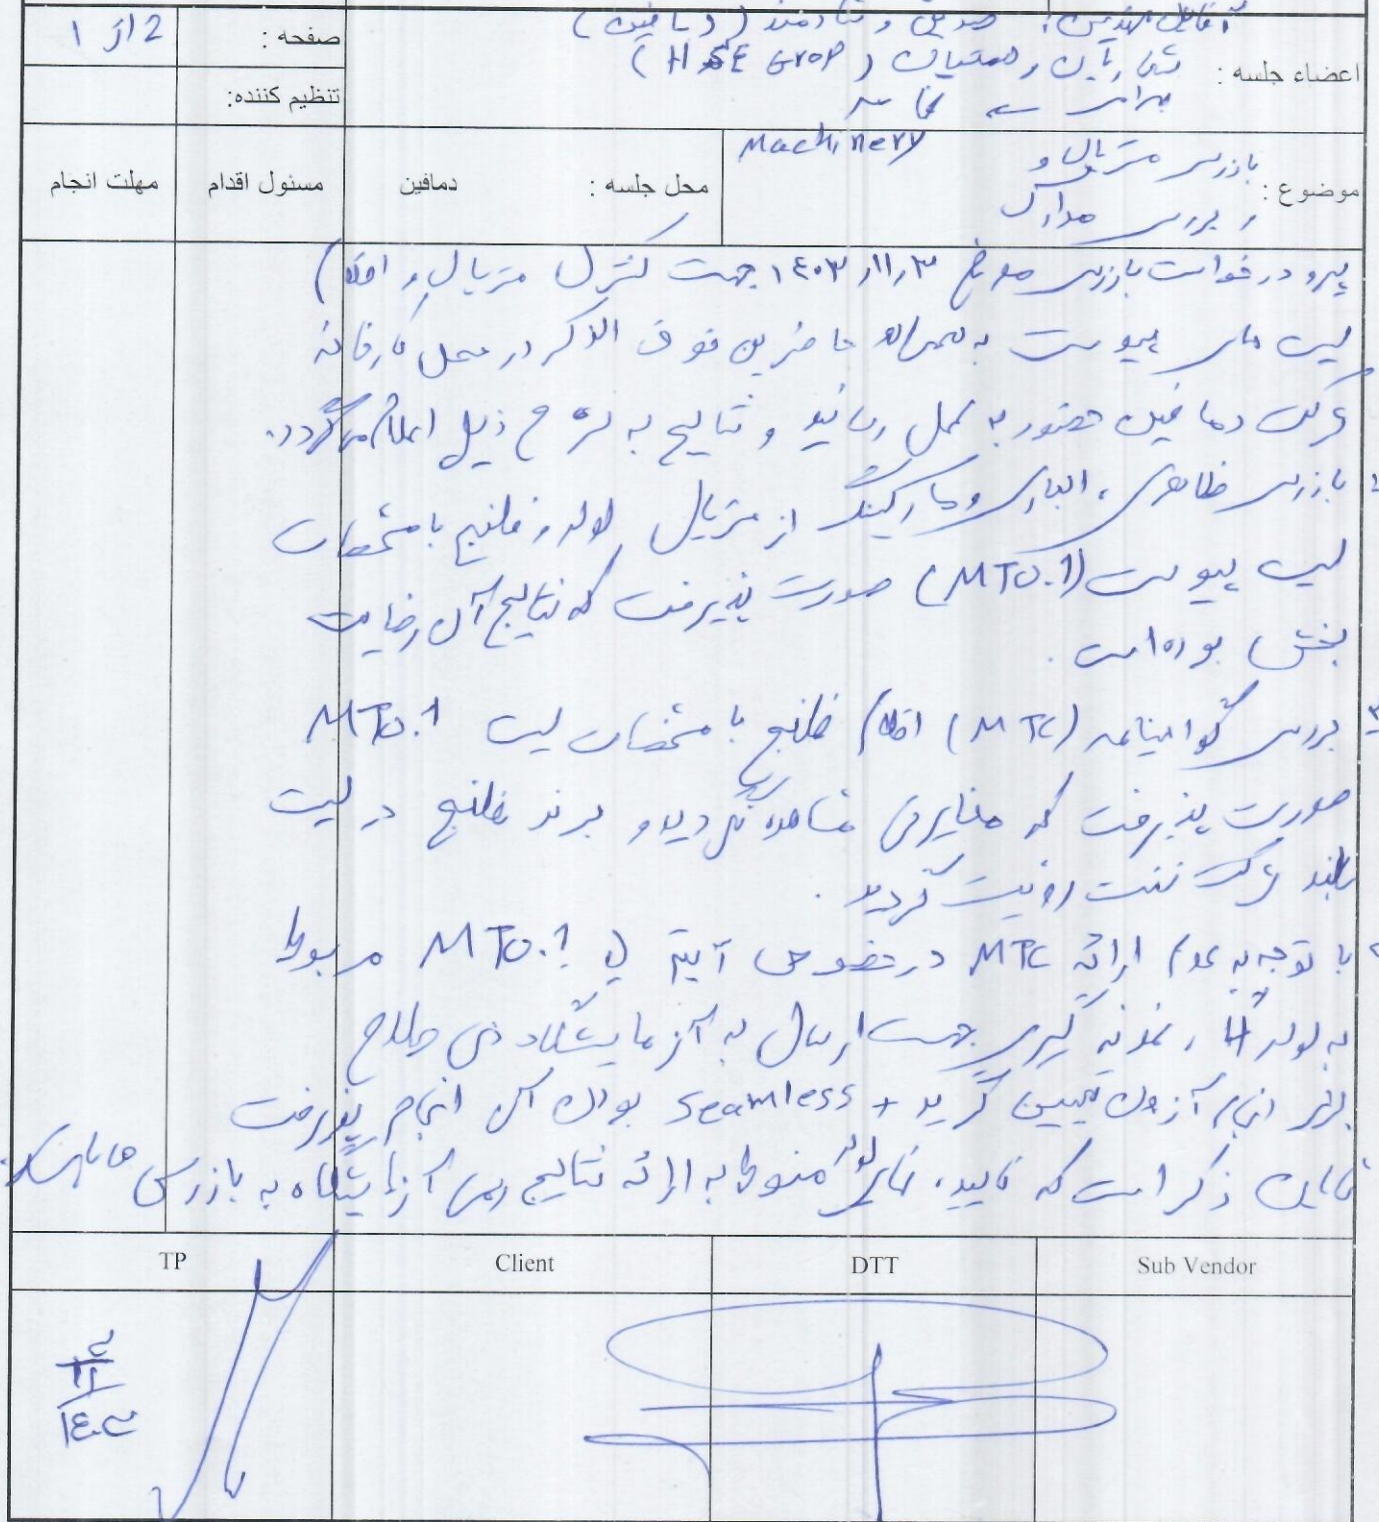 آقایان مهندسین: صدیقی و (دمافین)
صفحه : 1 از 2
اعضاء جلسه :
(HSE Grop)
تنظیم کننده:
Machinery
بازرسی متریال و
موضوع :
محل جلسه : دمافین
مسئول اقدام
مهلت انجام
و بررسی مدارک
پیرو درخواست بازرسی مورخ ۱۴۰۳/۱۱/۳ جهت کنترل متریال و اقلام
لیست های پیوست به همراه حاضرین فوق الذکر در محل کارخانه
شرکت دمافین حضور به عمل رسانید و نتایج به شرح ذیل اعلام می گردد.
بازرسی ظاهری، ابعادی و مارکینگ از متریال لوله و فلنج با مشخصات
لیست پیوست (MTO.1) صورت پذیرفت که نتایج آن رضایت
بخش بوده است.
بررسی گواهینامه (MTC) اقلام فلنج با مشخصات لیست MTO.1
صورت پذیرفت که مغایرتی مشاهده نگردید و برند فلنج در لیست
شرکت نفت رؤیت گردید.
با توجه به عدم ارائه MTC در خصوص آیتم MTO.1 مربوط
به لوله ، نمونه گیری جهت ارسال به آزمایشگاه ذی صلاح
انجام آزمون تعیین گرید + Seamless بودن آن انجام پذیرفت
شایان ذکر است که تایید نهایی لوله منوط به ارائه نتایج آزمایشگاه به بازرس
TP
Client
DTT
Sub Vendor
۳
۱۱
۱۴۰۳